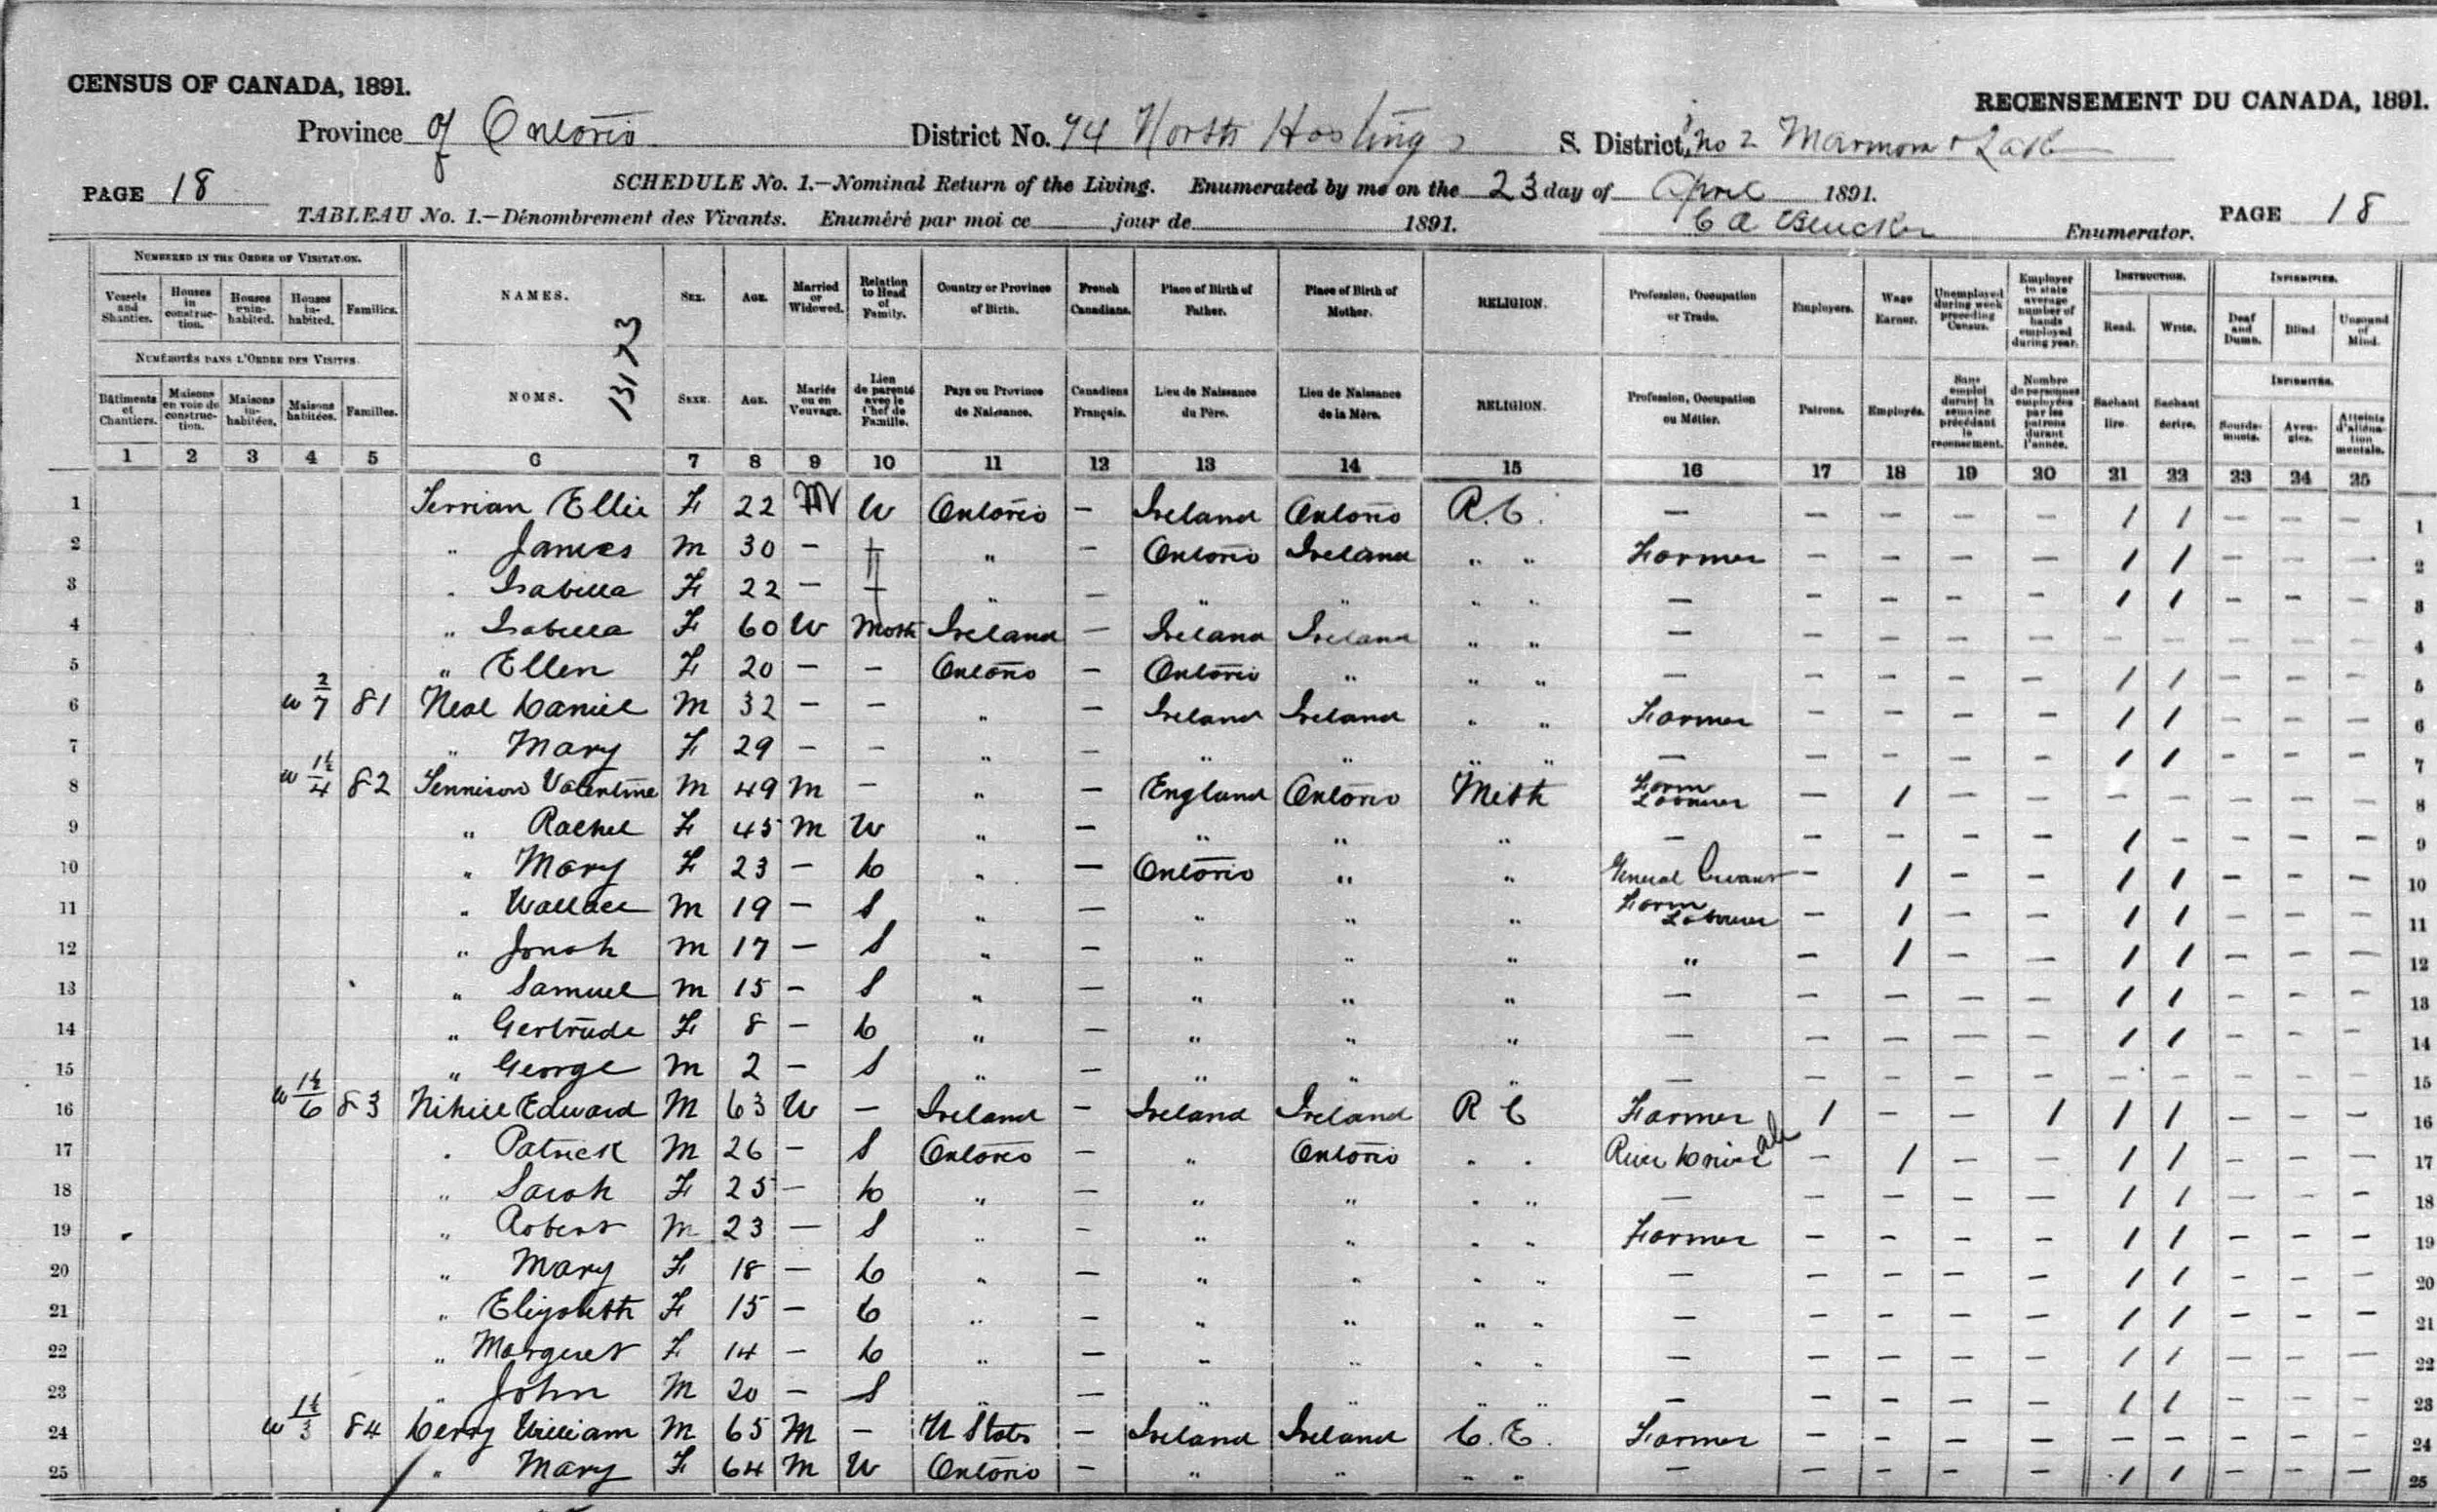 CENSUS OF CANADA, 1891. RECENSEMENT DU CANADA, 1891.
Province of Ontario District No. 74 North Hastings S. District, No 2 Marmora & Lake
PAGE 18 SCHEDULE No. 1.—Nominal Return of the Living. Enumerated by me on the 23 day of April 1891.
TABLEAU No. 1.—Dénombrement des Vivants. Enuméré par moi ce jour de 1891. C A Enumerator. PAGE 18
NUMBERED IN THE ORDER OF VISITATION.
Vessels and Shanties. Houses in construction. Houses uninhabited. Houses inhabited. Families. NAMES. SEX. AGE. Married or Widowed. Relation to Head of Family. Country or Province of Birth. French Canadians. Place of Birth of Father. Place of Birth of Mother. RELIGION. Profession, Occupation or Trade. Employers. Wage Earner. Unemployed during week preceding Census. Employer to state average number of hands employed during year. INSTRUCTION. Read. Write. INFIRMITIES. Deaf and Dumb. Blind. Unsound of Mind.
NUMÉROTÉS DANS L'ORDRE DES VISITES.
Bâtiments et Chantiers. Maisons en voie de construction. Maisons inhabitées. Maisons habitées. Familles. NOMS. SEXE. AGE. Mariés ou en Veuvage. Lien de parenté avec le Chef de Famille. Pays ou Province de Naissance. Canadiens Français. Lieu de Naissance du Père. Lieu de Naissance de la Mère. RELIGION. Profession, Occupation ou Métier. Patrons. Employés. Sans emploi durant la semaine précédant le recensement. Nombre de personnes employées par les patrons durant l'année. Sachant lire. Sachant écrire. INFIRMITÉS. Sourds-muets. Aveugles. Atteints d'aliénation mentale.
1 2 3 4 5 6 7 8 9 10 11 12 13 14 15 16 17 18 19 20 21 22 23 24 25
1 Ellie F 22 M W Ontorio - Ireland Ontorio R.C. - - - - - 1 1 - - - 1
2 " James M 30 - " - Ontorio Ireland " " Farmer - - - - 1 1 - - - 2
3 " Isabella F 22 - " - " " " " - - - - - 1 1 - - - 3
4 " Isabella F 60 W Moth Ireland - Ireland Ireland " " - - - - - - - - - - 4
5 " Ellen F 20 - - Ontorio - Ontorio " " " - - - - - 1 1 - - - 5
6 W 2/7 81 Neal Daniel M 32 - - " - Ireland Ireland " " Farmer - - - - 1 1 - - - 6
7 " Mary F 29 - - " - " " " " - - - - - 1 1 - - - 7
8 W 1½/4 82 Tennison Valentine M 49 M - " - England Ontorio Meth Farm Labourer - 1 - - - - - - - 8
9 " Rachel F 45 M W " - " " " - - - - - 1 - - - - 9
10 " Mary F 23 - D " - Ontorio " " General Servant - 1 - - 1 1 - - - 10
11 " Wallace M 19 - S " - " " " Farm Labourer - 1 - - 1 1 - - - 11
12 " Jonah M 17 - S " - " " " " - 1 - - 1 1 - - - 12
13 " Samuel M 15 - S " - " " " - - - - - 1 1 - - - 13
14 " Gertrude F 8 - D " - " " " - - - - - 1 1 - - - 14
15 " George M 2 - S " - " " " - - - - - - - - - - 15
16 W 1½/6 83 Nihill Edward M 63 W - Ireland - Ireland Ireland R C Farmer 1 - - 1 1 1 - - - 16
17 " Patrick M 26 - S Ontorio - " Ontorio " " River Driver - 1 - - 1 1 - - - 17
18 " Sarah F 25 - D " - " " " " - - - - - 1 1 - - - 18
19 " Robert M 23 - S " - " " " " Farmer - - - - 1 1 - - - 19
20 " Mary F 18 - D " - " " " " - - - - - 1 1 - - - 20
21 " Elizabeth F 15 - D " - " " " " - - - - - 1 1 - - - 21
22 " Margret F 14 - D " - " " " " - - - - - 1 1 - - - 22
23 " John M 20 - S " - " " " " - - - - - 1 1 - - - 23
24 W 1½/3 84 Derry William M 65 M - U States - Ireland Ireland C. E. Farmer - - - - - - - - - 24
25 " Mary F 64 M W Ontorio - " " " " - - - - - 1 1 - - - 25